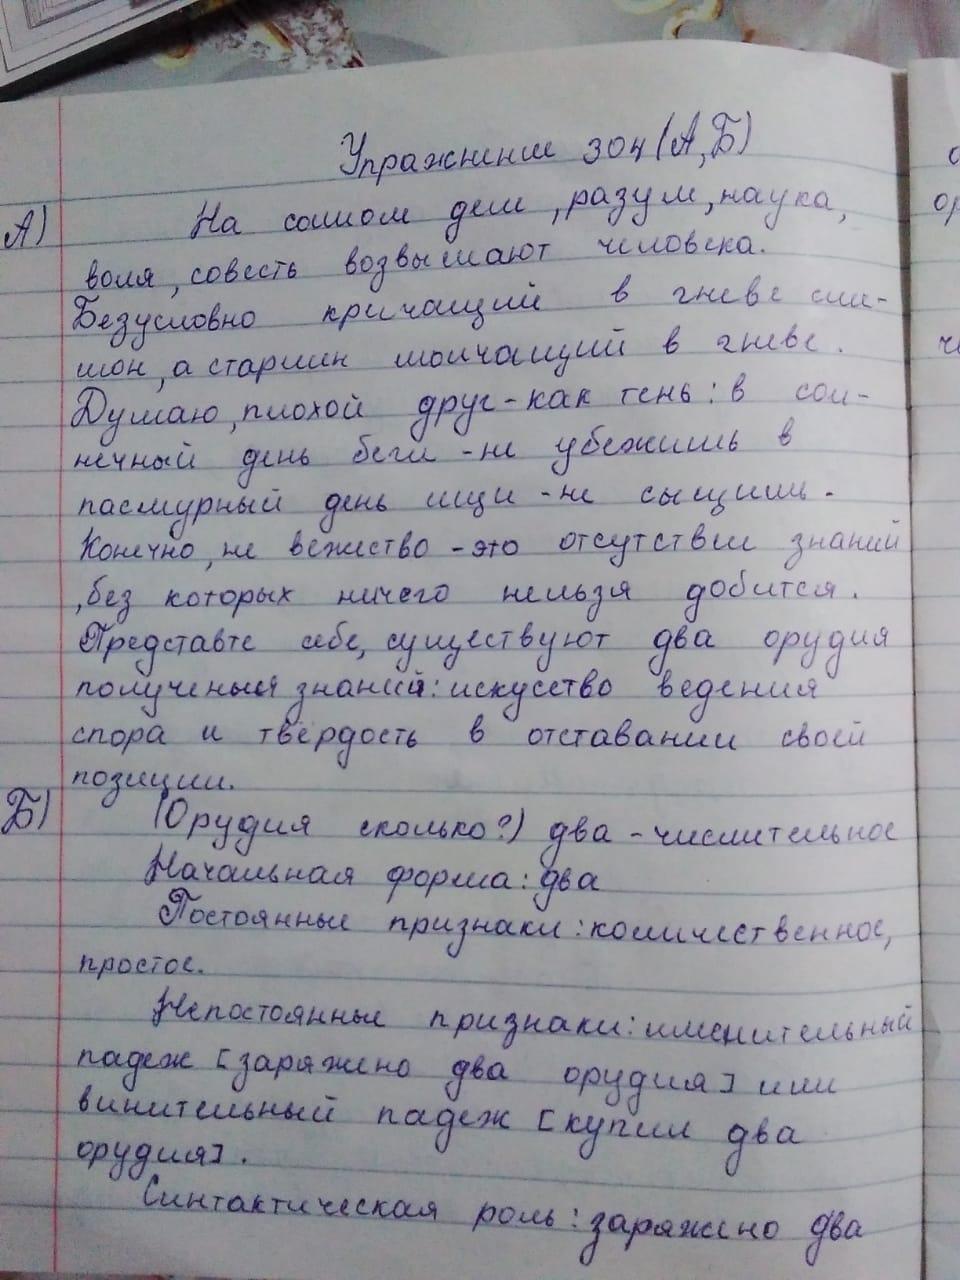 Упражнение 304 (А, Б)
А) На самом деле, разум, наука,
воля, совесть возвышают человека.
Безусловно кричащий в гневе сми-
шон, а старшин молчащий в гневе.
Думаю, плохой друг - как тень: в сол-
нечный день беги - не убежишь в
пасмурный день ищи - не сыщишь.
Конечно, не вежество - это отсутствие знаний
, без которых ничего нельзя добится.
Представте себе, существуют два орудия
полученыя знаний: искусство ведения
спора и твёрдость в отставании своей
позиции.
Б) (Орудия сколько?) два - числительное
Начальная форма: два
Постоянные признаки: количественное,
простое.
Непостоянные признаки: именительный
падеж [заряжено два орудия] или
винительный падеж [купил два
орудия].
Синтактическая роль: заряжено два
ор